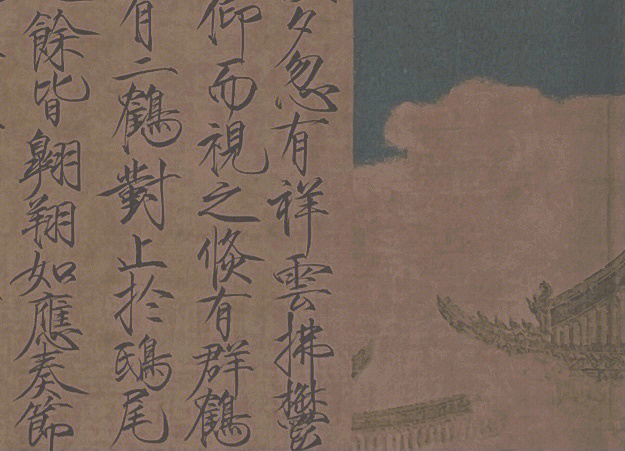 夕忽有祥雲拂鬱
仰而視之倏有群鶴
有二鶴對止於鴟尾
餘皆翱翔如應奏節